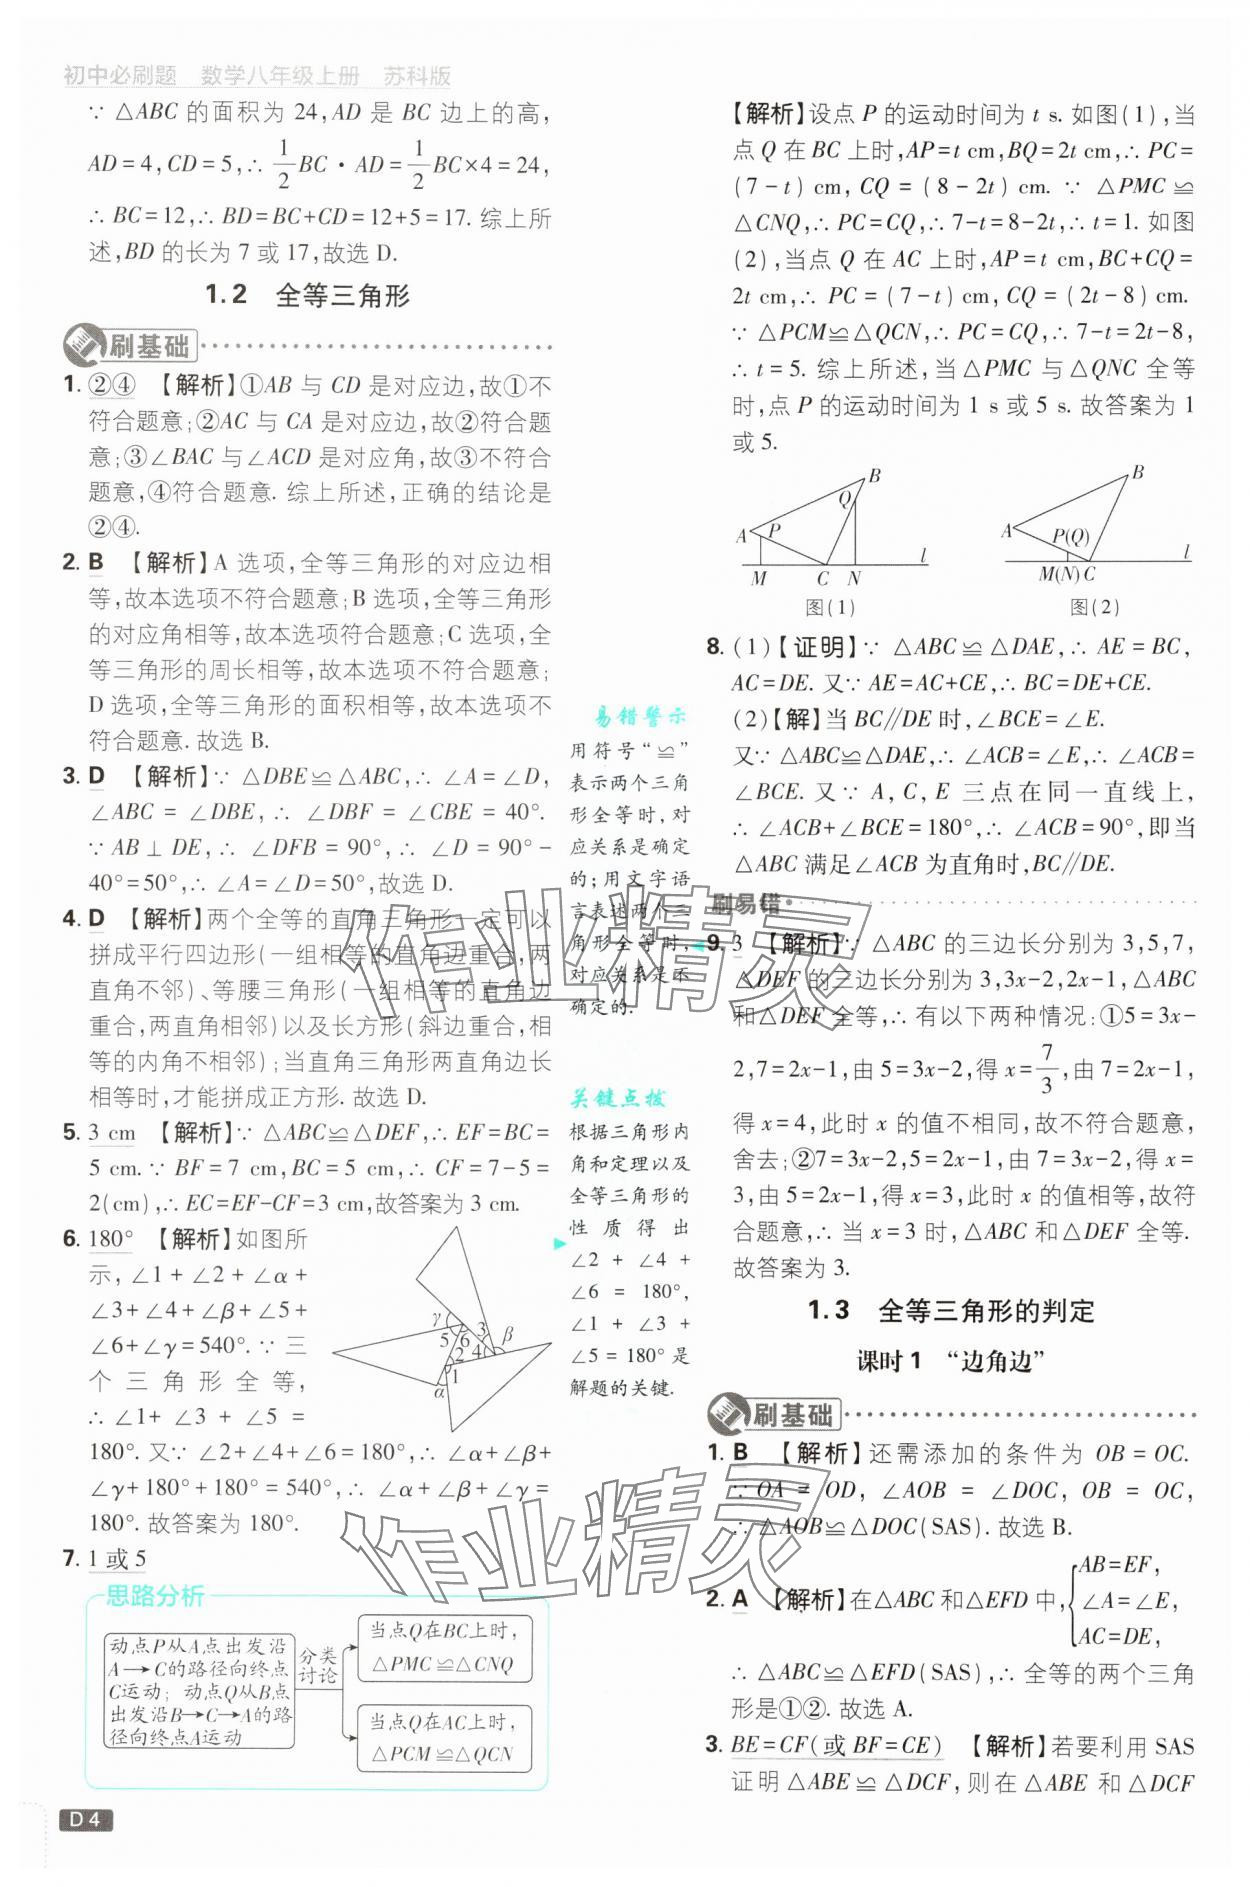 初中必刷题 数学八年级上册 苏科版
∵ △ABC 的面积为 24,AD 是 BC 边上的高,
AD=4,CD=5,∴ 1/2 BC·AD=1/2 BC×4=24,
∴ BC=12,∴ BD=BC+CD=12+5=17. 综上所
述,BD 的长为 7 或 17,故选 D.
1.2 全等三角形
刷基础
1. ②④ 【解析】①AB 与 CD 是对应边,故①不
符合题意;②AC 与 CA 是对应边,故②符合题
意;③∠BAC 与∠ACD 是对应角,故③不符合
题意,④符合题意. 综上所述,正确的结论是
②④.
2. B 【解析】A 选项,全等三角形的对应边相
等,故本选项不符合题意;B 选项,全等三角形
的对应角相等,故本选项符合题意;C 选项,全
等三角形的周长相等,故本选项不符合题意;
D 选项,全等三角形的面积相等,故本选项不
符合题意. 故选 B.
3. D 【解析】∵ △DBE≌△ABC,∴ ∠A=∠D,
∠ABC = ∠DBE, ∴ ∠DBF = ∠CBE = 40°.
∵ AB ⊥ DE, ∴ ∠DFB = 90°, ∴ ∠D = 90°-
40°=50°,∴ ∠A=∠D=50°,故选 D.
4. D 【解析】两个全等的直角三角形一定可以
拼成平行四边形(一组相等的直角边重合,两
直角不邻)、等腰三角形(一组相等的直角边
重合,两直角相邻)以及长方形(斜边重合,相
等的内角不相邻);当直角三角形两直角边长
相等时,才能拼成正方形. 故选 D.
5. 3 cm 【解析】∵ △ABC≌△DEF,∴ EF=BC=
5 cm. ∵ BF=7 cm,BC=5 cm,∴ CF=7-5=
2(cm),∴ EC=EF-CF=3 cm,故答案为 3 cm.
6. 180° 【解析】如图所
示,∠1+∠2+∠α+
∠3+∠4+∠β+∠5+
∠6+∠γ=540°. ∵ 三
个三角形全等,
∴ ∠1+ ∠3 + ∠5 =
180°. 又∵ ∠2+∠4+∠6=180°,∴ ∠α+∠β+
∠γ+180°+180°=540°,∴ ∠α+∠β+∠γ=
180°. 故答案为 180°.
γ 5 6 3 β 2 4 1 α
7. 1 或 5
思路分析
动点P从A点出发沿
A→C的路径向终点
C运动;动点Q从B点
出发沿B→C→A的路
径向终点A运动
分类
讨论
当点Q在BC上时,
△PMC≌△CNQ
当点Q在AC上时,
△PCM≌△QCN
D 4
易错警示
用符号“≌”
表示两个三角
形全等时,对
应关系是确定
的;用文字语
言表述两个三
角形全等时,
对应关系是不
确定的.
关键点拨
根据三角形内
角和定理以及
全等三角形的
性质得出
∠2 + ∠4 +
∠6 = 180°,
∠1 + ∠3 +
∠5=180°是
解题的关键.
【解析】设点 P 的运动时间为 t s. 如图(1),当
点 Q 在 BC 上时,AP=t cm,BQ=2t cm,∴ PC=
(7-t) cm, CQ = (8-2t) cm. ∵ △PMC ≌
△CNQ,∴ PC=CQ,∴ 7-t=8-2t,∴ t=1. 如图
(2),当点 Q 在 AC 上时,AP=t cm,BC+CQ=
2t cm,∴ PC = (7-t) cm, CQ = (2t-8) cm.
∵ △PCM≌△QCN,∴ PC=CQ,∴ 7-t=2t-8,
∴ t=5. 综上所述,当△PMC 与△QNC 全等
时,点 P 的运动时间为 1 s 或 5 s. 故答案为 1
或 5.
B Q A P M C N l
图(1)
B A P(Q) M(N) C l
图(2)
8. (1)【证明】∵ △ABC≌△DAE,∴ AE=BC,
AC=DE. 又∵ AE=AC+CE,∴ BC=DE+CE.
(2)【解】当 BC∥DE 时,∠BCE=∠E.
又∵ △ABC≌△DAE,∴ ∠ACB=∠E,∴ ∠ACB=
∠BCE. 又∵ A,C,E 三点在同一直线上,
∴ ∠ACB+∠BCE=180°,∴ ∠ACB=90°,即当
△ABC 满足∠ACB 为直角时,BC∥DE.
刷易错
9. 3 【解析】∵ △ABC 的三边长分别为 3,5,7,
△DEF 的三边长分别为 3,3x-2,2x-1,△ABC
和△DEF 全等,∴ 有以下两种情况:①5=3x-
2,7=2x-1,由 5=3x-2,得 x=7/3,由 7=2x-1,
得 x=4,此时 x 的值不相同,故不符合题意,
舍去;②7=3x-2,5=2x-1,由 7=3x-2,得 x=
3,由 5=2x-1,得 x=3,此时 x 的值相等,故符
合题意,∴ 当 x=3 时,△ABC 和△DEF 全等.
故答案为 3.
1.3 全等三角形的判定
课时1 “边角边”
刷基础
1. B 【解析】还需添加的条件为 OB=OC.
∵ OA = OD, ∠AOB = ∠DOC, OB = OC,
∴ △AOB≌△DOC(SAS). 故选 B.
2. A 【解析】在△ABC 和△EFD 中,{AB=EF, ∠A=∠E, AC=DE,
∴ △ABC≌△EFD(SAS),∴ 全等的两个三角
形是①②. 故选 A.
3. BE=CF(或 BF=CE) 【解析】若要利用 SAS
证明△ABE≌△DCF,则在△ABE 和△DCF
作业精灵
作业精灵